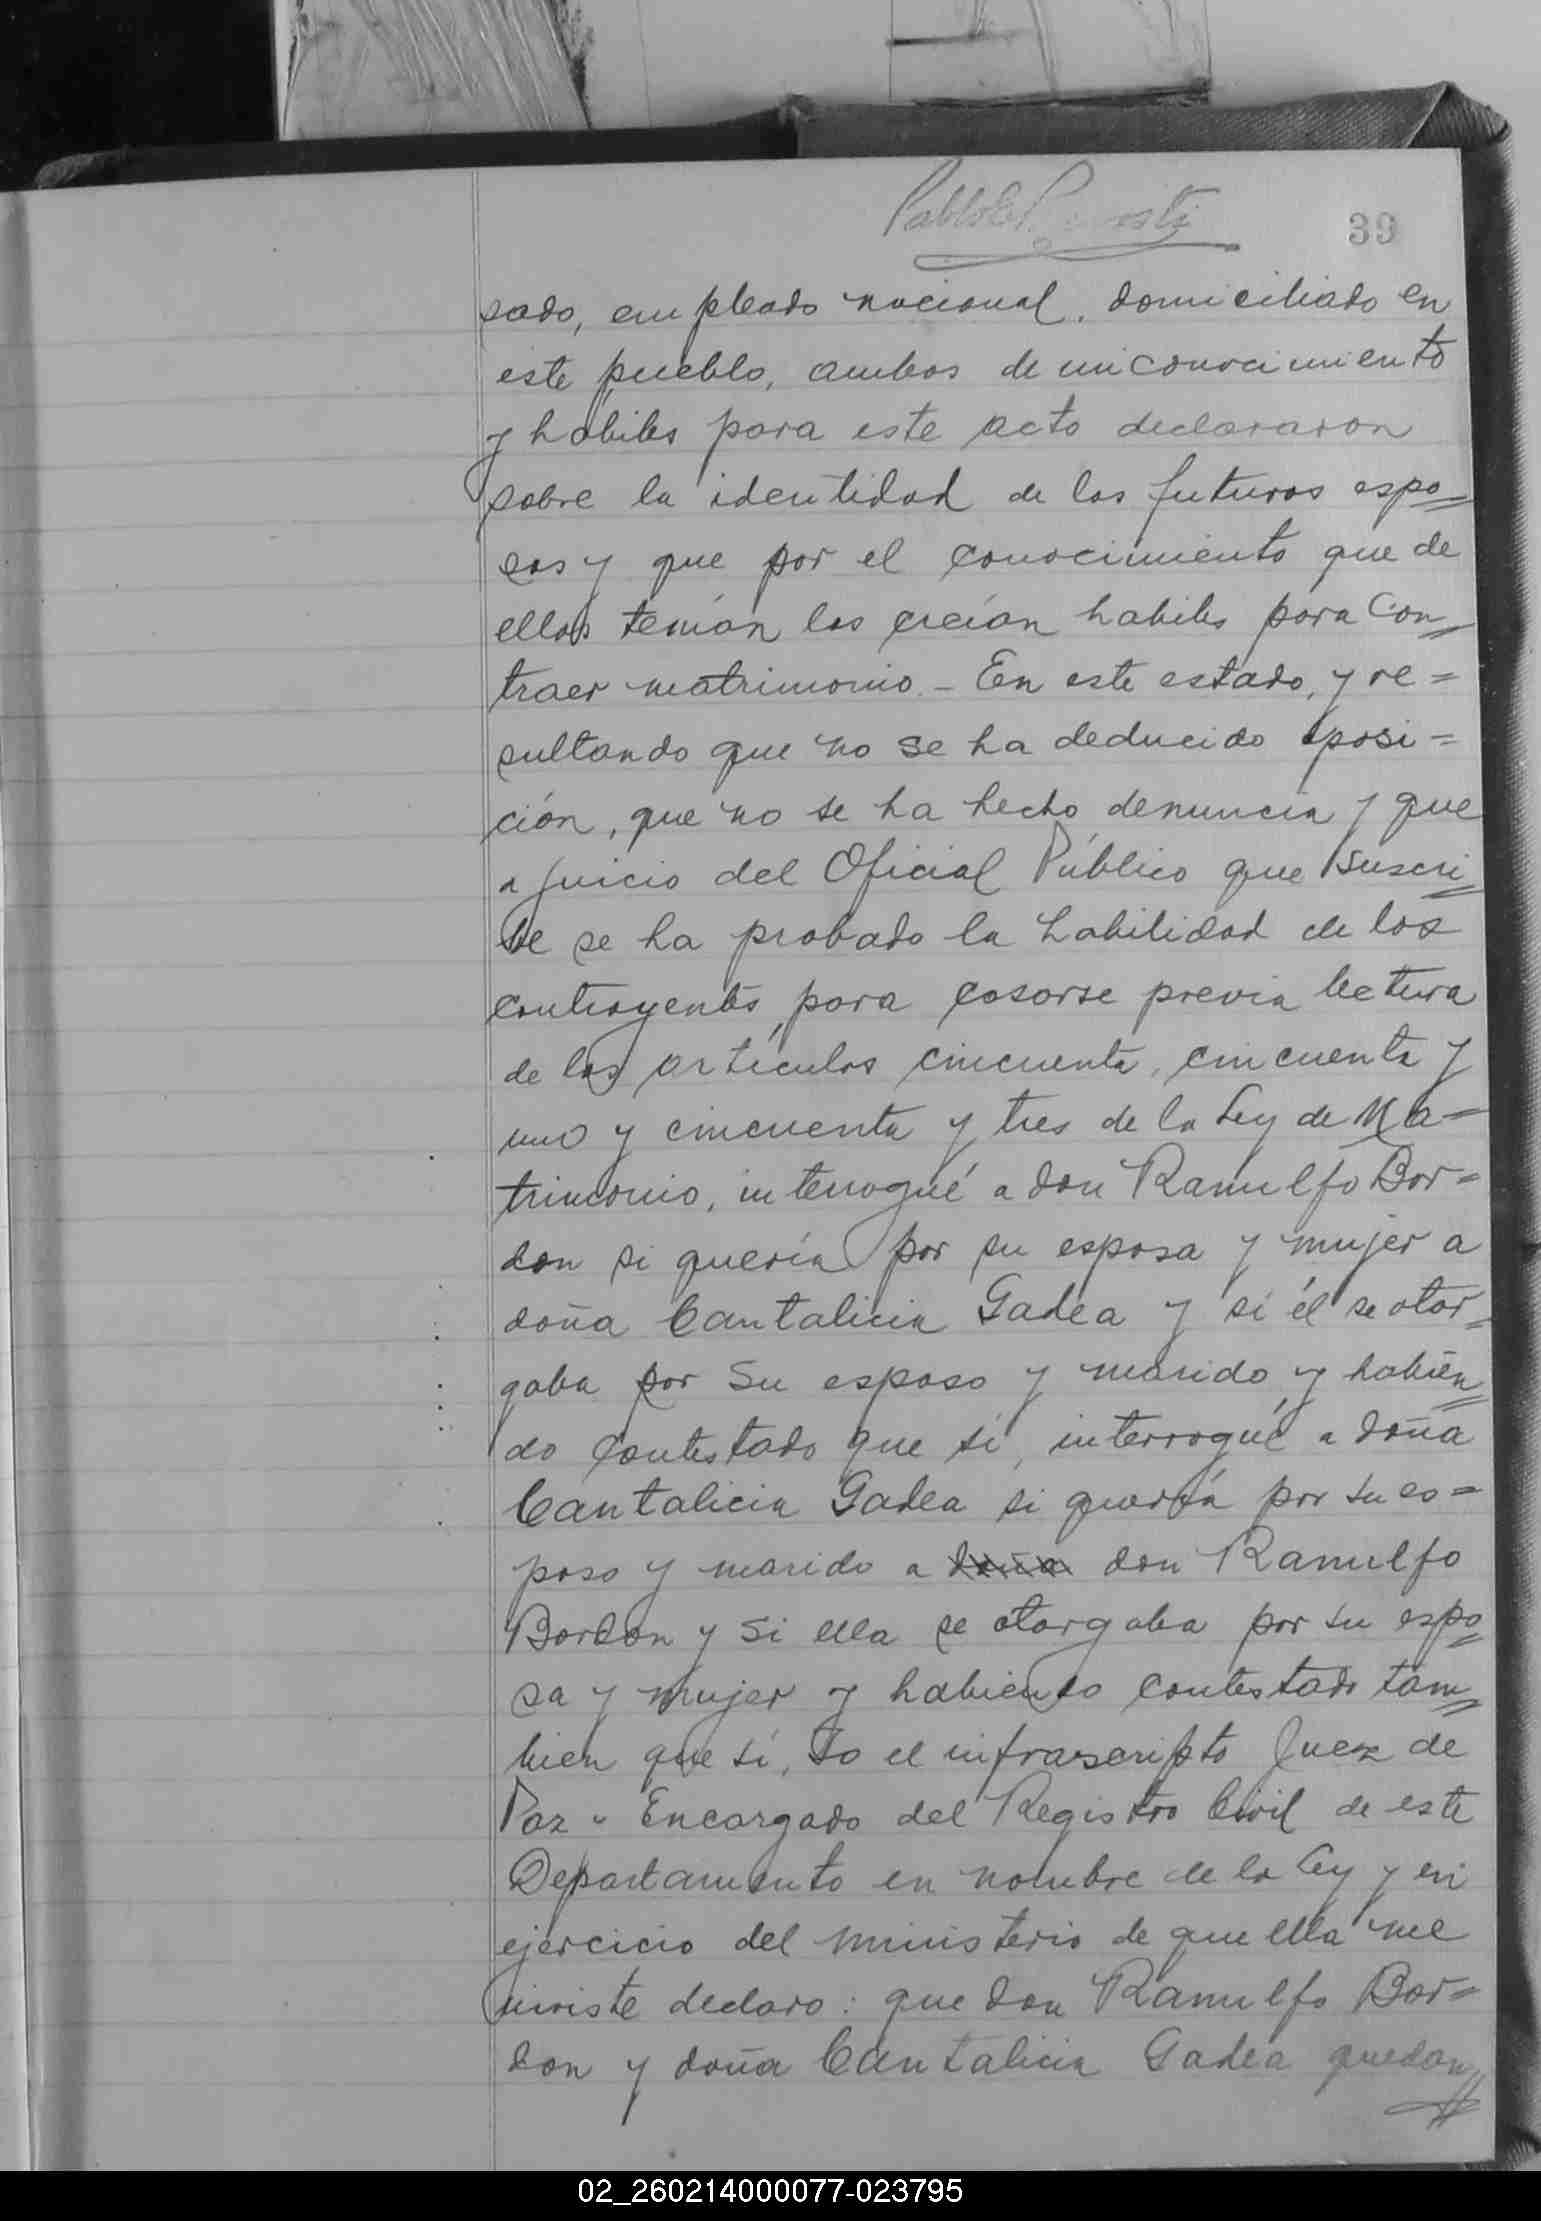 39
sado, empleado nacional, domiciliado en
este pueblo, ambos de mi conocimiento
y hábiles para este acto declararon
sobre la identidad de los futuros espo=
sos y que por el conocimiento que de
ellos tenían los creían habiles para con=
traer matrimonio.- En este estado, y re=
sultando que no se ha deducido oposi=
ción, que no se ha hecho denuncia y que
a juicio del Oficial Público que suscri=
be se ha probado la habilidad de los
contrayentes, para casarse previa lectura
de los artículos cincuenta, cincuenta y
uno y cincuenta y tres de la Ley de Ma=
trimonio, interrogué a don Ranulfo Bor=
don si quería por su esposa y mujer a
doña Cantalicia Gadea y si él se otor=
gaba por su esposo y marido y habien=
do contestado que sí, interrogué a doña
Cantalicia Gadea si quería por su es=
poso y marido a doña don Ranulfo
Bordon y si ella se otorgaba por su espo=
sa y mujer y habiendo contestado tam=
bien que sí, Yo el infrascripto Juez de
Paz - Encargado del Registro Civil de este
Departamento en nombre de la Ley y en
ejercicio del ministerio de que ella me
inviste declaro: que don Ranulfo Bor=
don y doña Cantalicia Gadea quedan
02_260214000077-023795